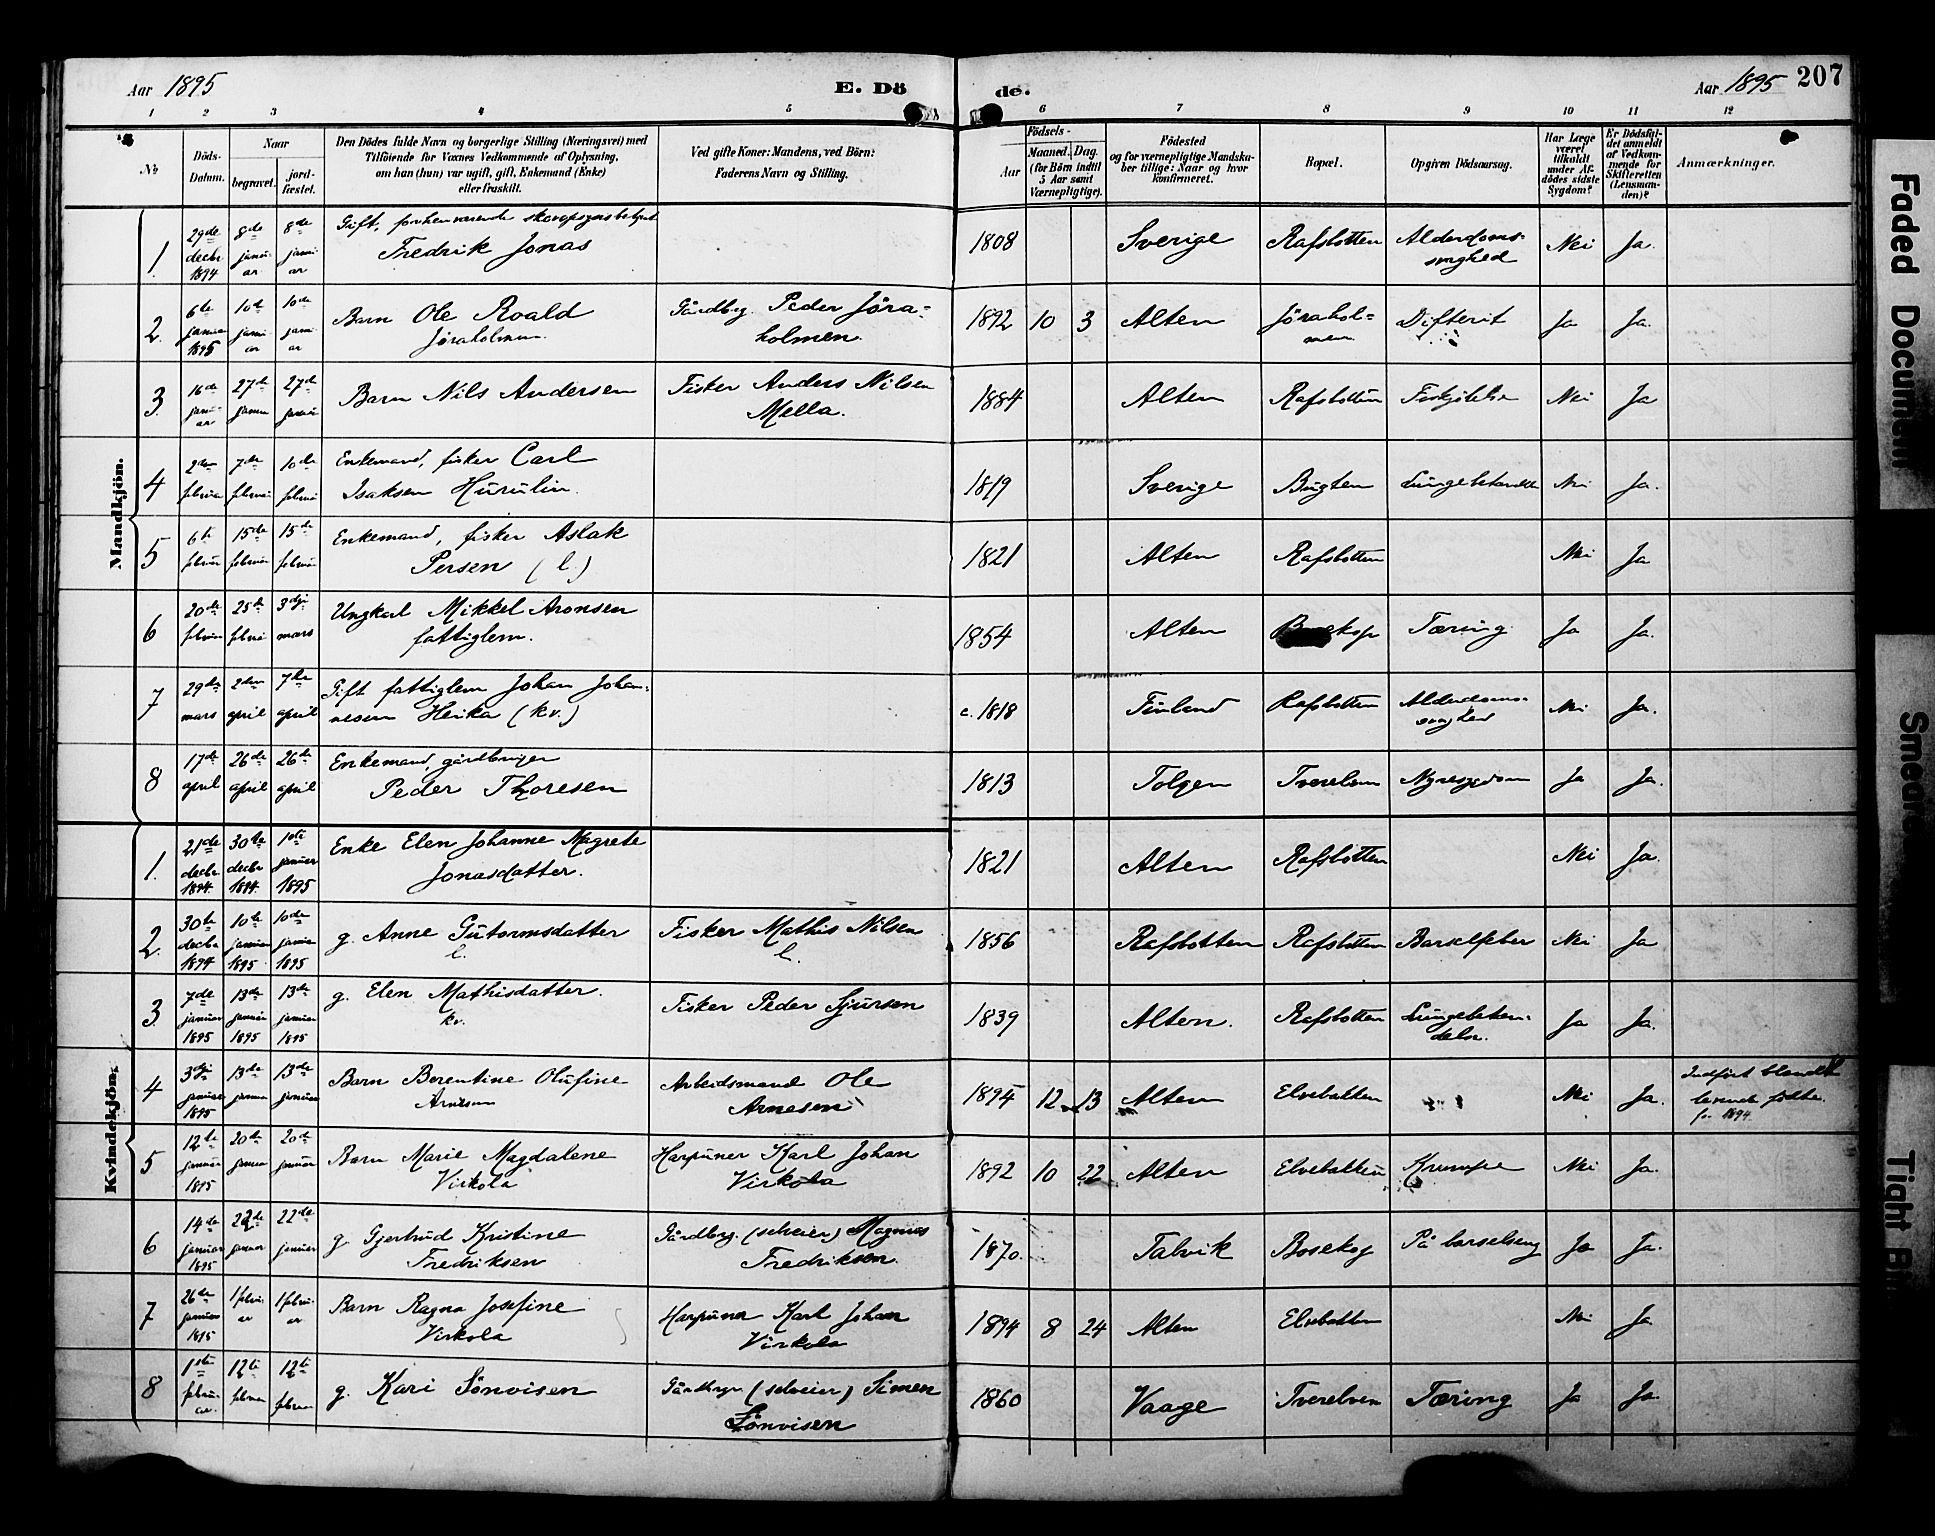 Aar 1895
E. Dö
de.
Aar 1895 207
1 2 3 4 5 6 7 8 9 10 11 12
№
Döds-Datum.
Naar
begravet.
jord-fæstet.
Den Dödes fulde Navn og borgerlige Stilling (Næringsvei) med
Tilföiende for Voxnes Vedkommende af Oplysning,
om han (hun) var ugift, gift, Enkemand (Enke)
eller fraskilt.
Ved gifte Koner: Mandens, ved Börn:
Faderens Navn og Stilling.
Födsels-
Aar
Maaned. Dag.
(for Börn indtil
5 Aar samt
Værnepligtige).
Födested
og for værnepligtige Mandska-
ber tillige: Naar og hvor
konfirmeret.
Bopæl.
Opgiven Dödsaarsag.
Har Læge
været
tilkaldt
under Af-
dödes sidste
Sygdom?
Er Dödsfal-
det anmeldt
af Vedkom-
mende for
Skifteretten
(Lensman-
den)?
Anmærkninger.
Mandkjön.
1. 29de decbr 1894 8de januar 8de januar Gift, forhenværende skovopsynsbetjent
Fredrik Jonas 1808 Sverige Rafsbotten Alderdoms-
svaghed Nei Ja.
2. 6te januar 1895 10de januar 10de januar Barn Ole Roald
Jøraholmen Gårdbrg. Peder Jøra-
holmen. 1892 10 3 Alten Jørahol-
men Difterit Ja Ja.
3. 16de januar 27de januar 27de januar Barn Nils Andersen Fisker Anders Nilsen
Mella. 1884 Alten Rafsbotten Nei Ja
4 2den februar 7de februar 10de februar Enkemand, fisker Carl
Isaksen Hurulin. 1819 Sverige Bugten Nei Ja.
5 6te februar 15de februar 15de februar Enkemand, fisker Aslak
Persen (l.) 1821 Alten Rafsbotten Nei Ja
6 20de februar 25de februar 3dje mars Ungkarl Mikkel Aronsen
fattiglem. 1854 Alten Tæring Ja Ja.
7 29de mars 2den april 7de april Gift fattiglem Johan Johan-
nesen Heika (kv.) c. 1818 Finland Rafsbotten Alderdoms-
svaghed Nei Ja.
8 17de april 26de april 26de april Enkemand, gårdbruger
Peder Thoresen 1813 Tolgen Tverelven Nyresygdom Ja Ja.
Kvindekjön.
1. 21de decbr 1894. 30te decbr 1894. 1ste januar 1895 Enke Elen Johanne Magrete
Jonasdatter. 1821 Alten Rafsbotten Nei Ja.
2. 30te decbr 1894 10de januar 1895 10de januar 1895 g. Anne Gutormsdatter
l. Fisker Mathis Nilsen
l. 1856 Rafsbotten Rafsbotten Barselfeber Nei Ja
3. 7de januar 1895 13de januar 1895 13de januar 1895 g. Elen Mathisdatter.
kv. Fisker Peder Sjursen 1839 Alten. Rafsbotten Lungebeten-
delse. Ja Ja.
4 3dje januar 1895 13de januar 13de januar Barn Berentine Olufine
Arnesen Arbeidsmand Ole
Arnesen 1894 12 13 Alten Elvebakken Nei Ja. Indført blandt
levende fødte
for 1894.
5 12te januar 1895 20de januar 20de januar Barn Marie Magdalene
Virkola Harpuner Karl Johan
Virkola 1892 10 22 Alten Elvebakken Krampe Nei Ja.
6 14de januar 1895 22de januar 22de januar g. Gjertrud Kristine
Fredriksen Gårdbrg. (selveier) Magnus
Fredriksen. 1870. Talvik Bosekop På barselseng Ja Ja.
7 26de januar 1895 1 februar 1 februar Barn Ragna Josefine
Virkola Harpuner Karl Johan
Virkola 1894 8 24 Alten Elvebakken Nei Ja.
8 1ste februar 12te februar 12te februar g. Kari Sønvisen Gårdbrgr. (selveier) Simen
Sønvisen 1860 Vaage Tverelven Tæring Ja Ja.
Faded Document
Smeared
Tight Bi